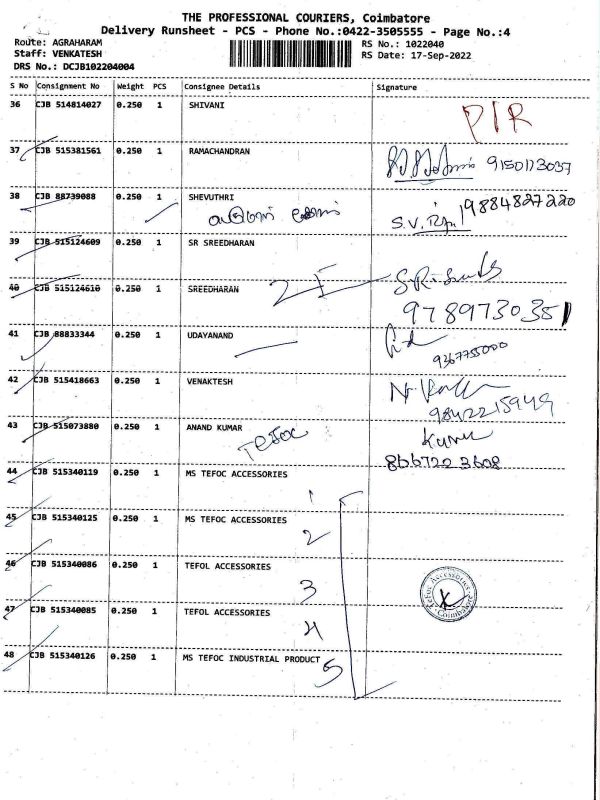 THE PROFESSIONAL COURIERS, Coimbatore
Delivery Runsheet - PCS - Phone No.:0422-3505555 - Page No.:4
Route: AGRAHARAM
Staff: VENKATESH
DRS No.: DCJB102204004
RS No.: 1022040
RS Date: 17-Sep-2022
S No Consignment No Weight PCS Consignee Details Signature
36 CJB 514814027 0.250 1 SHIVANI P/R
37 CJB 515381561 0.250 1 RAMACHANDRAN 9150113037
38 CJB 88739088 0.250 1 SHEVUTHRI 9884827220
S.V.
39 CJB 515124609 0.250 1 SR SREEDHARAN
40 CJB 515124610 0.250 1 SREEDHARAN
9789730351
41 CJB 88833344 0.250 1 UDAYANAND
9367755000
42 CJB 515418663 0.250 1 VENAKTESH
9842215949
43 CJB 515073880 0.250 1 ANAND KUMAR Kumar
TEFOC 8667223608
44 CJB 515340119 0.250 1 MS TEFOC ACCESSORIES
1
45 CJB 515340125 0.250 1 MS TEFOC ACCESSORIES
2
46 CJB 515340086 0.250 1 TEFOL ACCESSORIES
3
Tefoc Accessories Coimbatore
47 CJB 515340085 0.250 1 TEFOL ACCESSORIES
4
48 CJB 515340126 0.250 1 MS TEFOC INDUSTRIAL PRODUCT
5